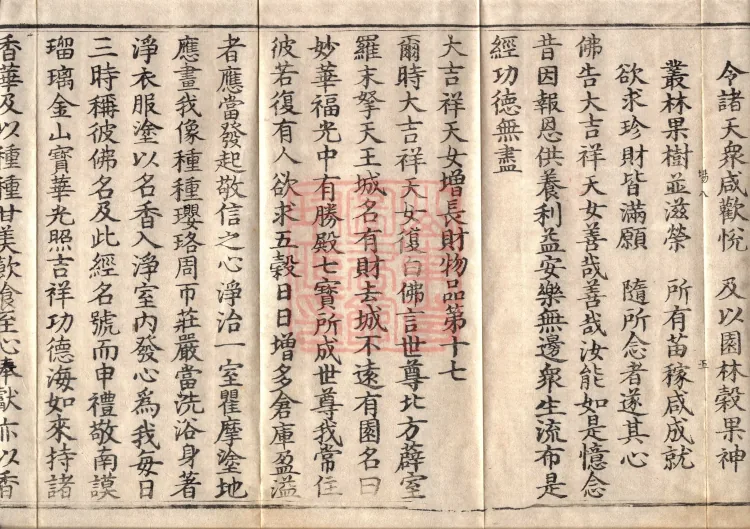 令諸天衆咸歡悅　及以園林穀果神
叢林果樹並滋榮　所有苗稼咸成就
欲求珍財皆滿願　隨所念者遂其心
佛告大吉祥天女善哉善哉汝能如是憶念
昔因報恩供養利益安樂無邊衆生流布是
經功德無盡
大吉祥天女增長財物品第十七
爾時大吉祥天女復白佛言世尊北方薜室
羅末拏天王城名有財去城不遠有園名曰
妙華福光中有勝殿七寶所成世尊我常住
彼若復有人欲求五穀日日增多倉庫盈溢
者應當發起敬信之心淨治一室瞿摩塗地
應畫我像種種瓔珞周帀莊嚴當洗浴身著
淨衣服塗以名香入淨室內發心爲我每日
三時稱彼佛名及此經名號而申禮敬南謨
瑠璃金山寶華光照吉祥功德海如來持諸
香華及以種種甘美飲食至心奉獻亦以香